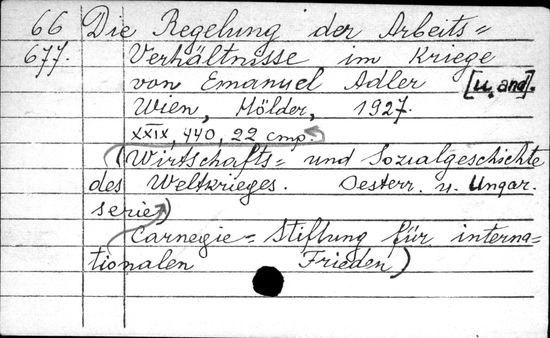 66 Die Regelung der Arbeits=
677. Verhältnisse im Kriege
von Emanuel Adler [u. and].
Wien, Hölder, 1927.
XXIX, 440, 22 cmp.
(Wirtschafts= und Sozialgeschichte
des Weltkrieges. Oesterr. u. Ungar.
serie)
Carnegie= Stiftung für interna=
tionalen Frieden)